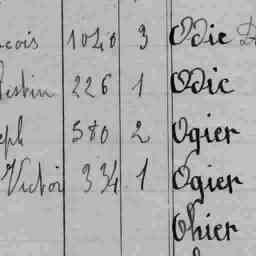 cois 1040 3 Odic D
lestin 226 1 Odic
eph 580 2 Ogier
Victor 334 1 Ogier
Ohier